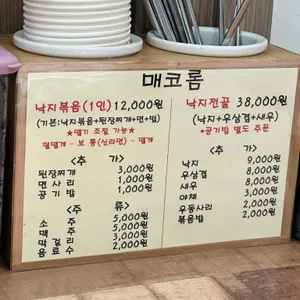 매코롬
낙지볶음(1인) 12,000원
(기본:낙지볶음+된장찌개+면+밥)
*맵기 조절 가능*
덜맵게 - 보통(신라면) - 맵게
<추 가>
된장찌개 3,000원
면사리 1,000원
공기밥 1,000원
<주 류>
소 주 5,000원
맥 주 5,000원
막걸리 3,000원
음료수 2,000원
낙지전골 38,000원
(낙지+우삼겹+새우)
*공기밥 별도 주문
<추 가>
낙지 9,000원
우삼겹 8,000원
새우 8,000원
야채 3,000원
우동사리 2,000원
볶음밥 2,000원